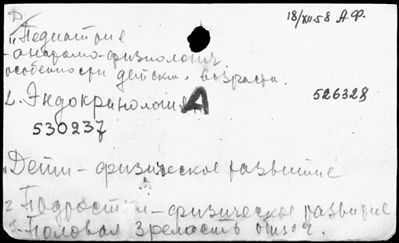 18/XII 58 А.Ф.
1. Педиатрия
- анатомо-физиология.
особенности детск. возраста.
2. Эндокринология А
526328
530237
1. Дети - физическое развитие
2 Подростки - физическое развитие
3. Половая зрелость